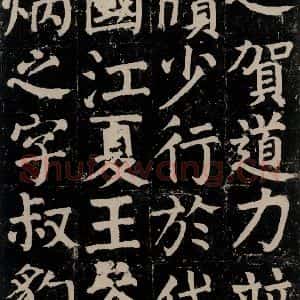 賀道力
少行於
國江夏王
炳之字叔
Shufawang.cn